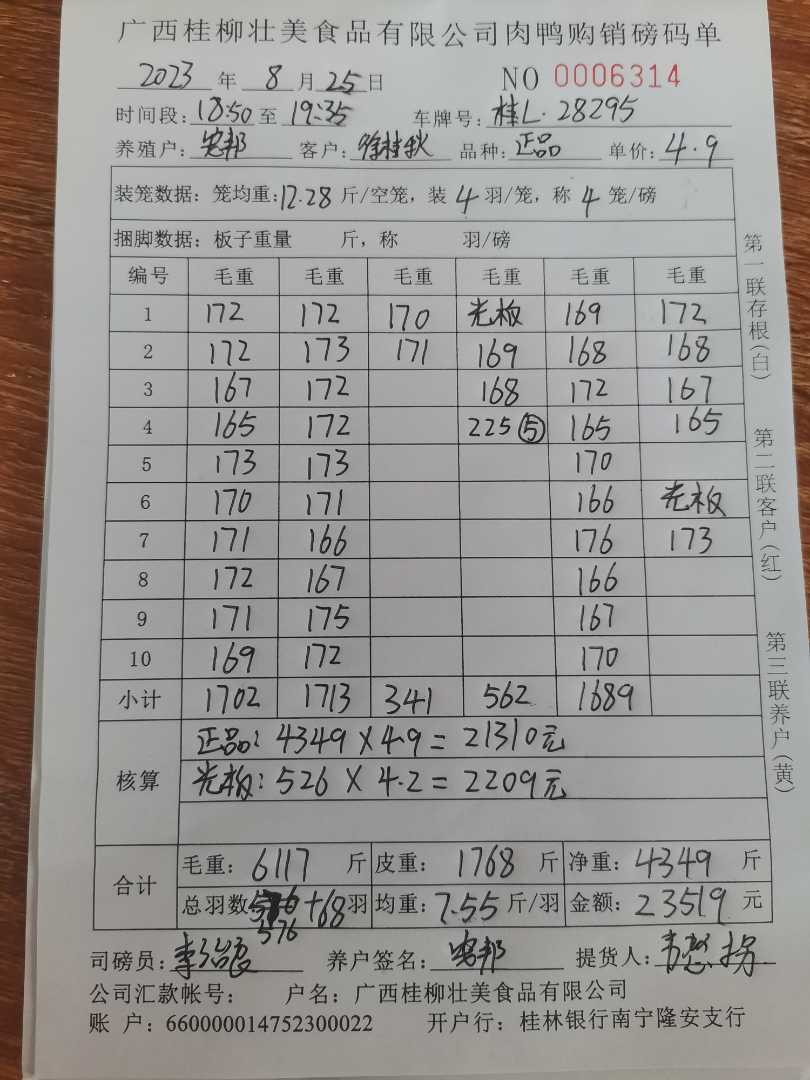 广西桂柳壮美食品有限公司肉鸭购销磅码单
2023 年 8 月 25 日 NO 0006314
时间段: 18:50 至 19:35 车牌号: 桂L·28295
养殖户: 邦 客户: 徐桂秋 品种: 正品 单价: 4.9
装笼数据: 笼均重: 12.28 斤/空笼, 装 4 羽/笼, 称 4 笼/磅
捆脚数据: 板子重量 斤, 称 羽/磅
编号 毛重 毛重 毛重 毛重 毛重 毛重
1 172 172 170 光板 169 172
2 172 173 171 169 168 168
3 167 172 168 172 167
4 165 172 225⑤ 165 165
5 173 173 170
6 170 171 166 光板
7 171 166 176 173
8 172 167 166
9 171 175 167
10 169 172 170
小计 1702 1713 341 562 1689
核算
正品: 4349 × 4.9 = 21310元
光板: 526 × 4.2 = 2209元
合计
毛重: 6117 斤 皮重: 1768 斤 净重: 4349 斤
总羽数 576 +68 羽 均重: 7.55 斤/羽 金额: 23519 元
576
司磅员: 李 养户签名: 邦 提货人: 韦
公司汇款帐号: 户名: 广西桂柳壮美食品有限公司
账 户: 660000014752300022 开户行: 桂林银行南宁隆安支行
第一联存根(白) 第二联客户(红) 第三联养户(黄)